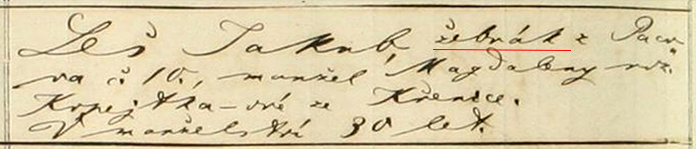 Leš Jakub, žebrák z Paco-
va č. 10., manžel Magdaleny roz.
Kopejtka-ové ze Křenice.
V manželství 30 let.